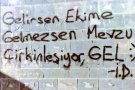 Gelirsen Ekime
Gelmezsen Mevzu
Çirkinleşiyor, GEL :)
-İ.D.